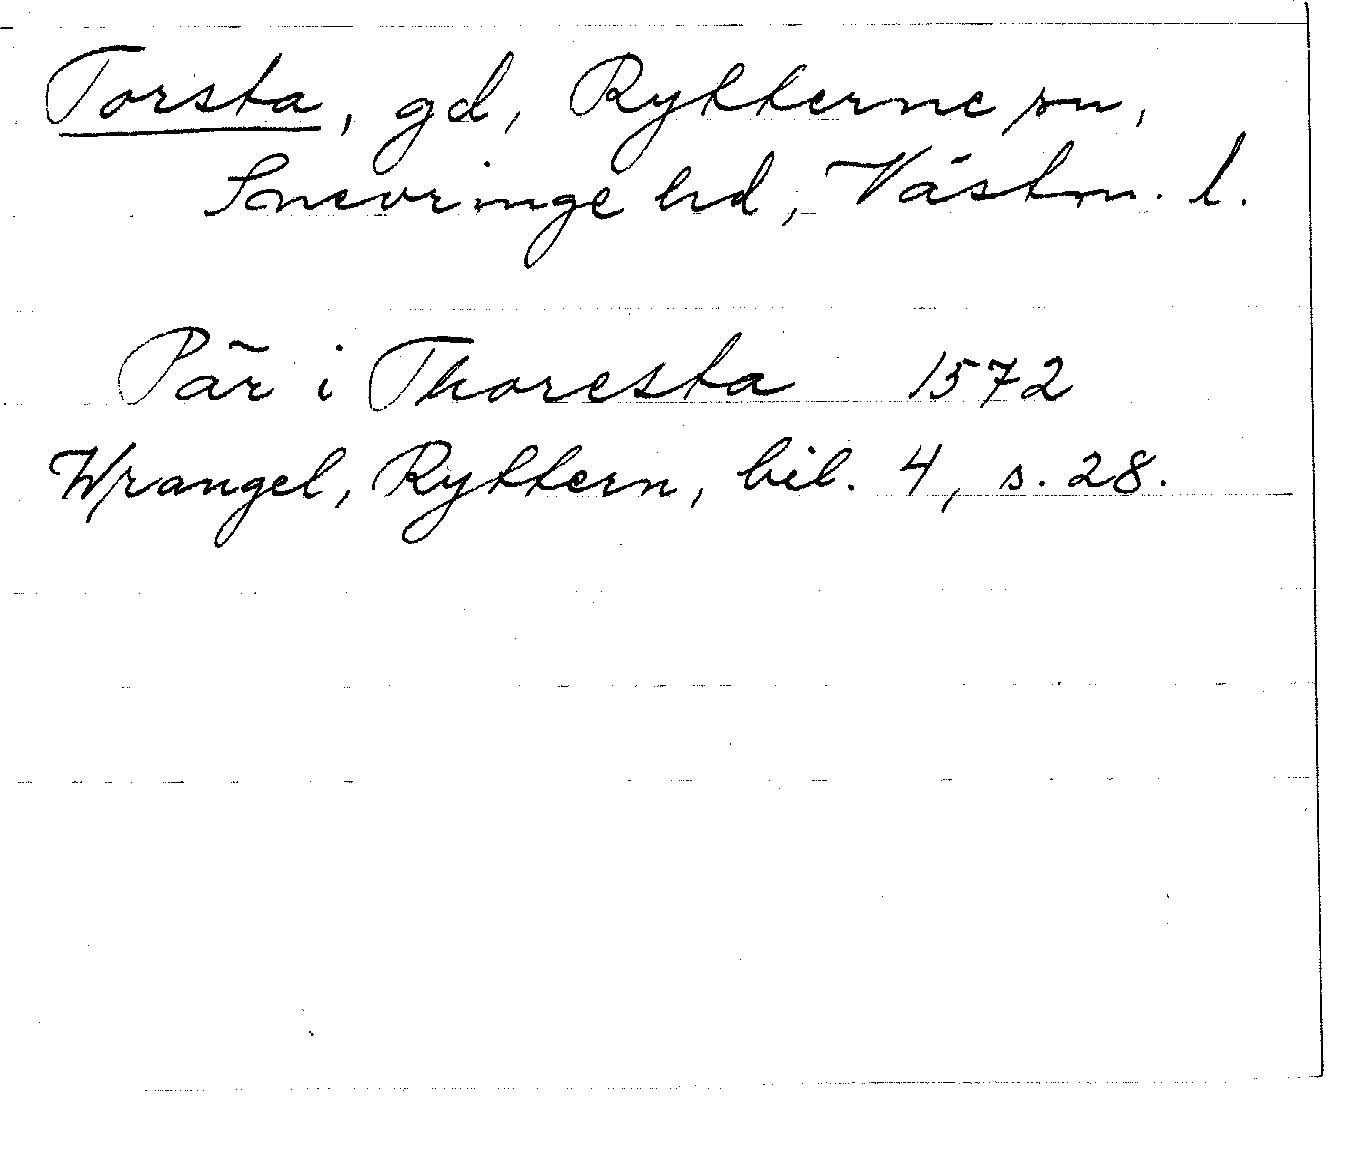 Torsta, gd, Rytterne sn,
Snevringe hd, Västm. l.
Pär i Thoresta 1572
Wrangel, Ryttern, bil. 4, s. 28.